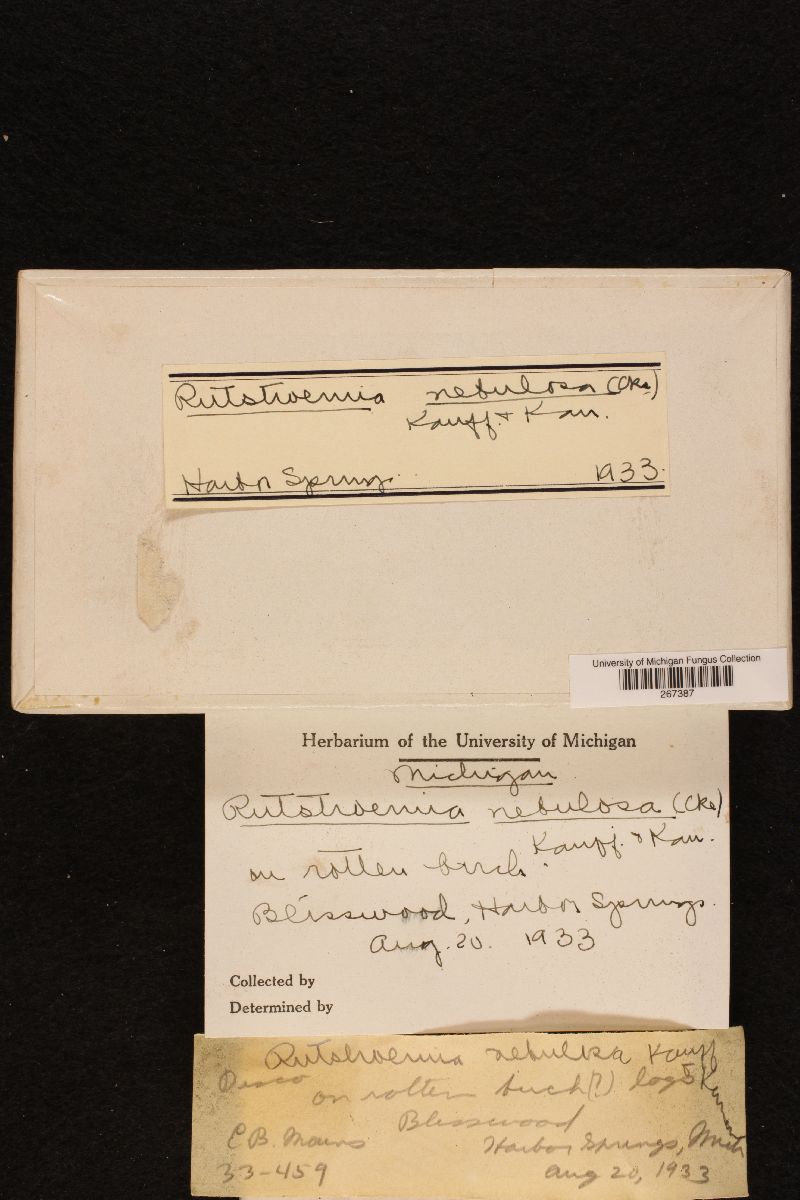 Rutstroemia nebulosa (Cke)
Kauff. & Kan.
Harbor Springs. 1933.
University of Michigan Fungus Collection
267387
Herbarium of the University of Michigan
Michigan
Rutstroemia nebulosa (Cke)
Kauff. & Kan.
on rotten birch.
Blisswood, Harbor Springs.
Aug. 20. 1933
Collected by
Determined by
Rutstroemia nebulosa Kauff
Disco on rotten birch(?) log &
Blisswood
E B. Mains Harbor Springs, Mich
33-459 Aug 20, 1933